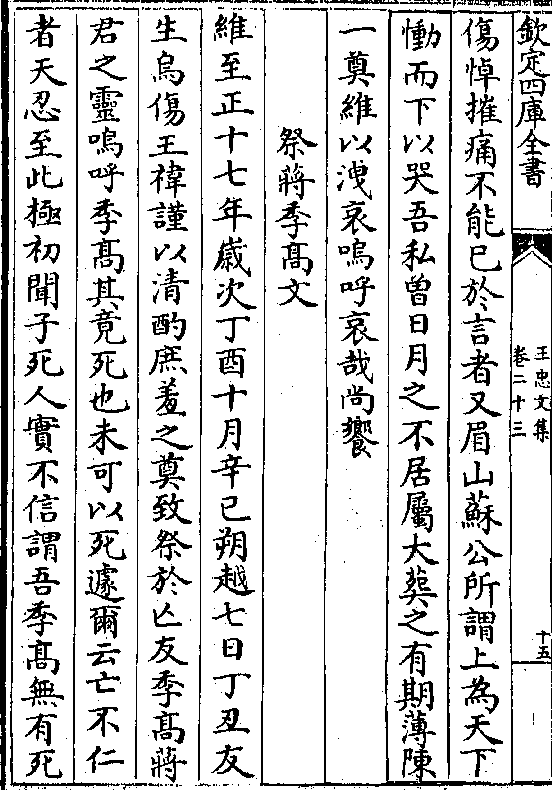 欽定四庫全書
王忠文集
卷二十三
十五
傷悼摧痛不能已於言者又眉山蘇公所謂上為天下
慟而下以哭吾私曽日月之不居屬大葬之有期薄陳
一奠維以洩哀嗚呼哀哉尚饗
祭蔣季髙文
維至正十七年嵗次丁酉十月辛已朔越七日丁丑友
生烏傷王禕謹以清酌庶羞之奠致祭於亡友季髙蔣
君之靈嗚呼季髙其竟死也未可以死遽爾云亡不仁
者天忍至此極初聞子死人實不信謂吾季髙無有死